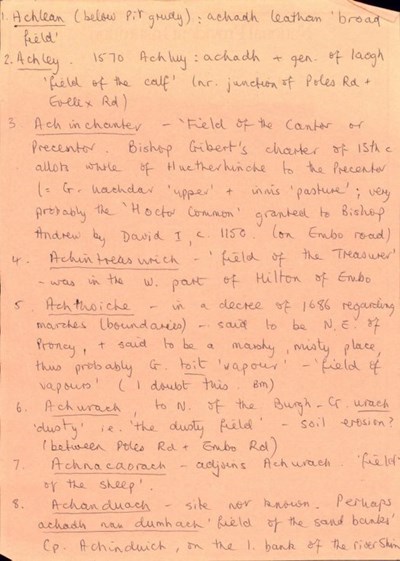 1. Achlean (below Pitgrudy) : achadh leathan 'broad
field'
2. Achley. 1570 Achluy : achadh + gen. of laogh
'field of the calf' (nr. junction of Poles Rd +
Evelix Rd)
3 Achinchanter - 'Field of the Cantor or
Precentor. Bishop Gibert's charter of 13th c
allots whole of Huctherhinche to the Precentor
(= G. uachdar 'upper' + innis 'pasture'; very
probably the 'Hoctor Common' granted to Bishop
Andrew by David I, c. 1150. (on Embo road)
4. Achintreasurich - 'field of the Treasurer'
- was in the W. part of Hilton of Embo
5 Achthoiche - in a decree of 1686 regarding
marches (boundaries) - said to be N.E. of
Proncy, + said to be a marshy, misty place,
thus probably G. toit 'vapour' - 'field of
vapours' (I doubt this. BM)
6. Achurach, to N. of the Burgh - G. urach
'dusty' i.e. 'the dusty field' - soil erosion?
(between Poles Rd + Embo Rd)
7. Achnacaorach - adjoins Achurach. 'field
of the sheep'.
8. Achanduach - site not known. Perhaps
achadh nan dumhach 'field of the sand banks'
Cp. Achinduich, on the l. bank of the river Shin